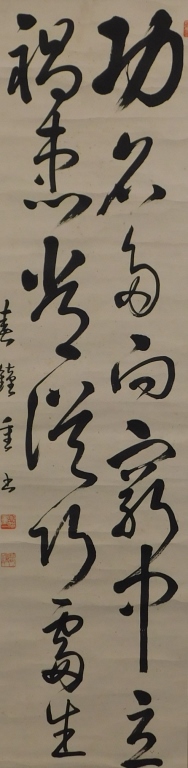 功名多向窮中立
禍患常從巧處生
春鐘重書